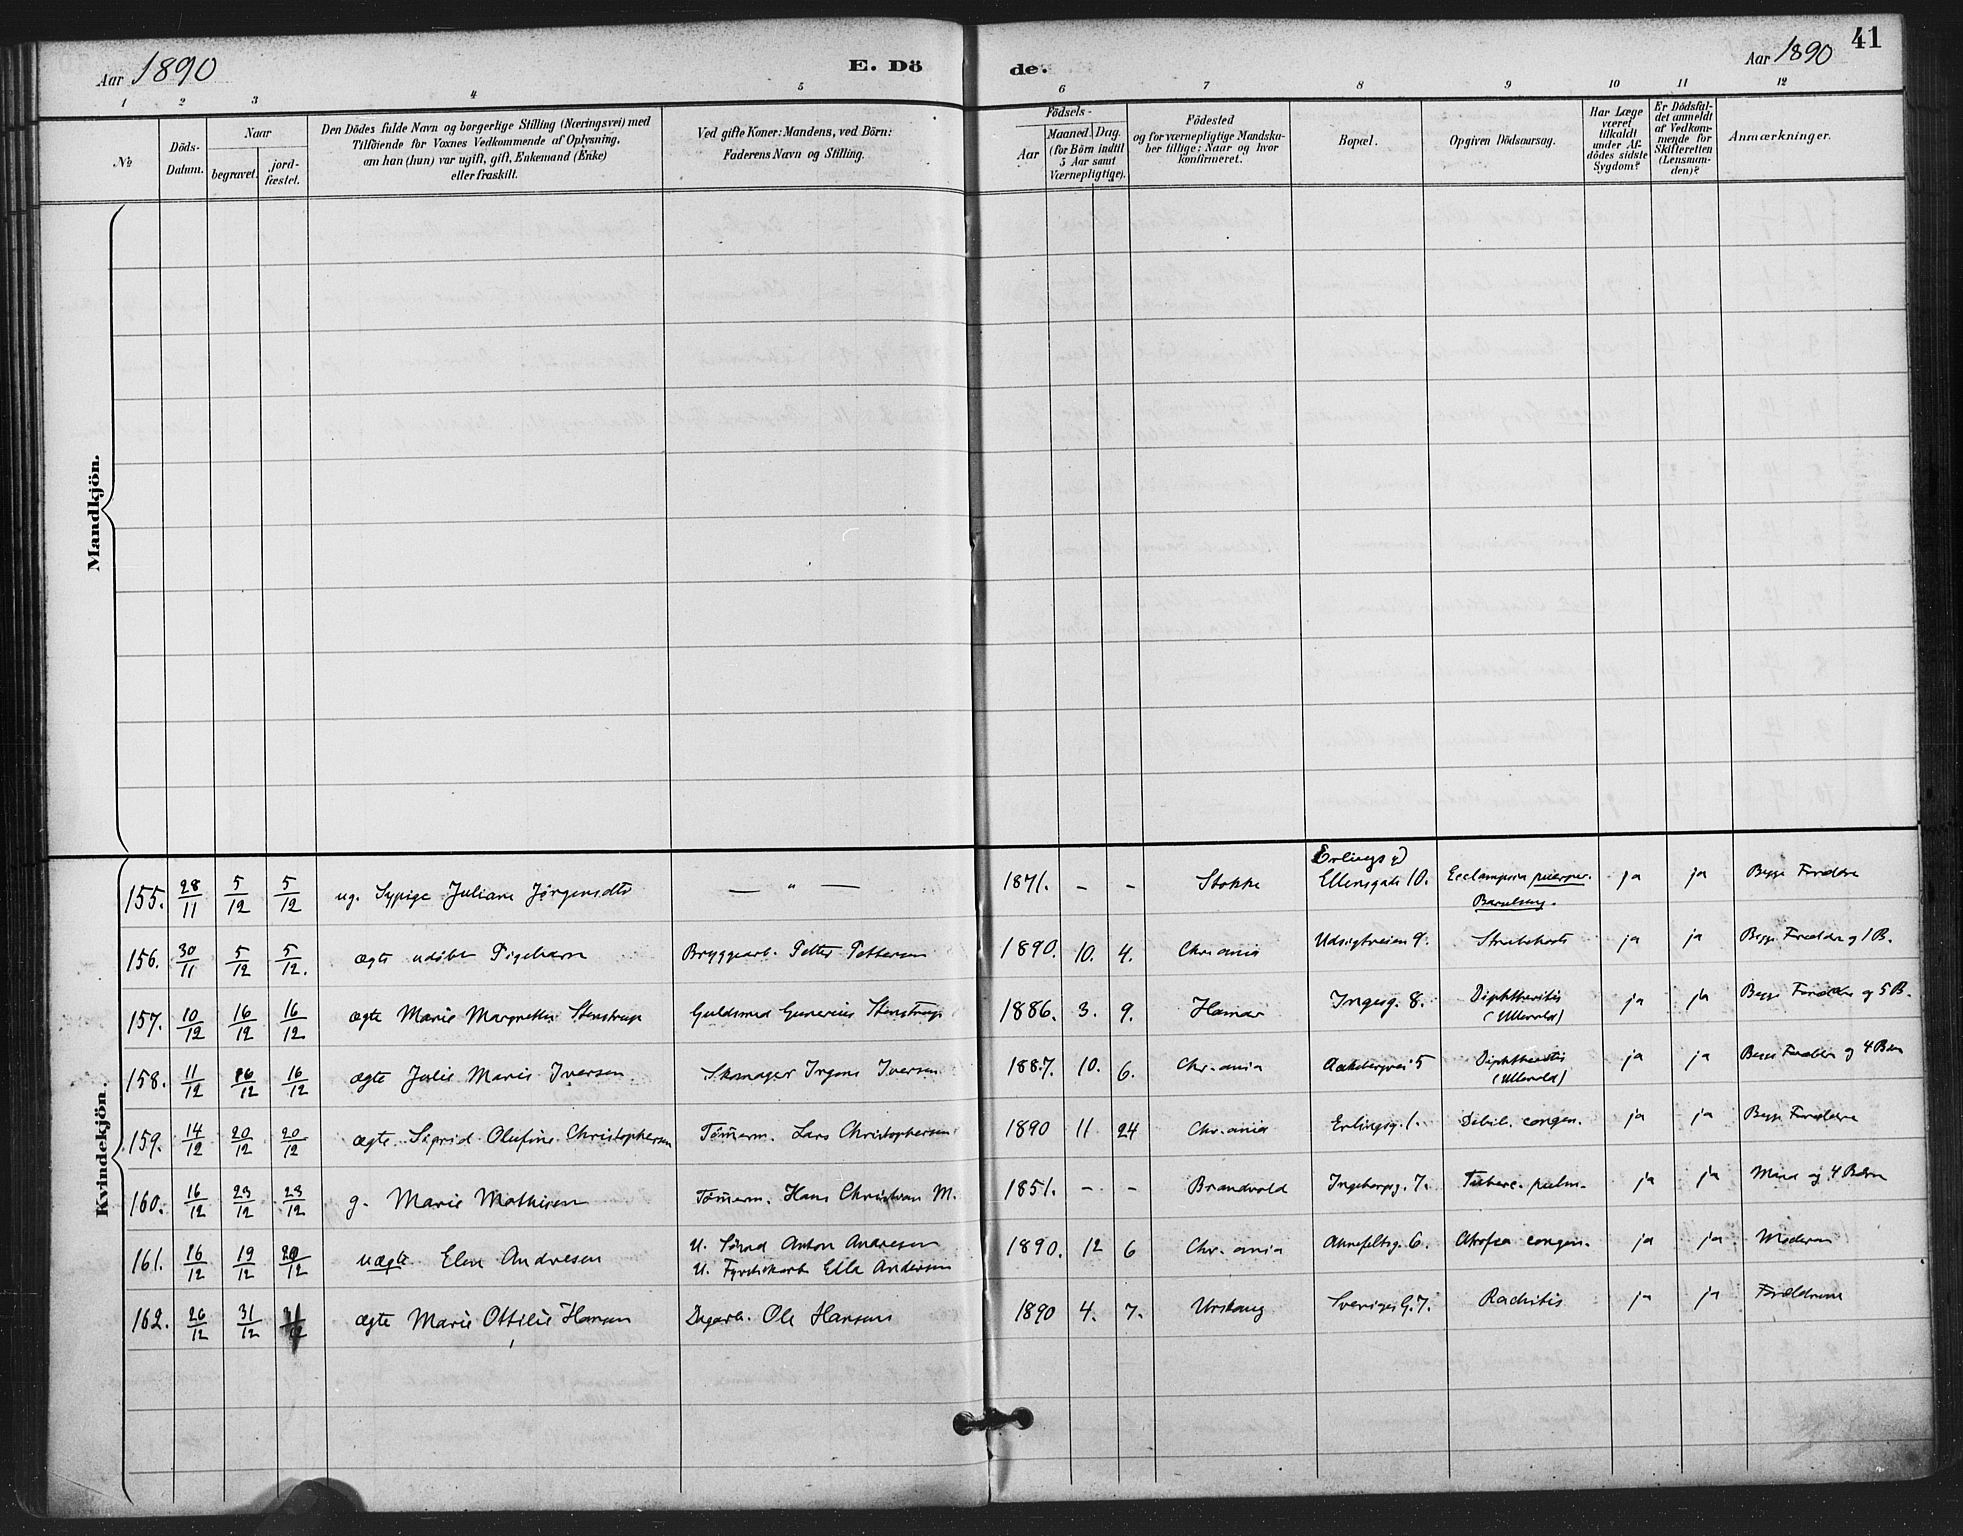 41
Aar 1890 E. Dö de. Aar 1890
1 2 3 4 5 6 7 8 9 10 11 12
No
Döds-
Datum.
Naar
begravet.
jord-
fæstet.
Den Dödes fulde Navn og borgerlige Stilling (Næringsvei) med
Tilföiende for Voxnes Vedkommende af Oplysning,
om han (hun) var ugift, gift, Enkemand (Enke)
eller fraskilt.
Ved gifte Koner: Mandens, ved Börn:
Faderens Navn og Stilling.
Födsels-
Aar
Maaned. Dag.
(for Börn indtil
5 Aar samt
Værnepligtige).
Födested
og for værnepligtige Mandska-
ber tillige: Naar og hvor
konfirmeret.
Bopæl.
Opgiven Dödsaarsag.
Har Læge
været
tilkaldt
under Af-
dödes sidste
Sygdom?
Er Dödsfal-
det anmeldt
af Vedkom-
mende for
Skifteretten
(Lensman-
den)?
Anmærkninger.
Mandkjön.
Kvindekjön.
155. 28/11 5/12 5/12 ug. Sypige Juliane Jørgensdtr — " — 1871. - - Stokke Ellensgade 10. Ecclampsia puerper. ja ja Begge Forældre
Barselseng.
156. 30/11 5/12 5/12. ægte udøbt Pigebarn Bryggearb. Petter Pettersen 1890. 10. 4. Chr.ania Udsigtveien 9. ja ja Begge Forældre og 1 B.
157. 10/12 16/12 16/12 ægte Marie Margrethe Stenstrup Guldsmed Gunerius Stenstrup 1886. 3. 9. Hamar Ingesg. 8. Diphtheritis ja ja Begge Forældre og 5 B.
(Ullevold)
158. 11/12 16/12 16/12 ægte Julie Marie Iversen Skomager Iversen 1887. 10. 6. Chr.ania Aakebergvei 5 Diphtheritis ja ja Begge Forældre og 4 Børn
(Ullevold)
159. 14/12 20/12 20/12 ægte Sigrid Olufine Christophersen Tømerm. Lars Christophersen 1890 11 24 Chr.ania Erlingsg. 1. Debil. congen. ja ja Begge Forældre
160. 16/12 23/12 23/12 g. Marie Mathisen Tømerm. Hans Christian M. 1851. - - Brandvold Ingeborgg. 7. Tuberc. pulm. ja ja Mand og 4 Børn
161. 16/12 19/12 20/12 uægte Elen Andresen U. Smed Anton Andresen 1890. 12 6 Chr.ania Ankefeltsg. 6. Atrofia congen. ja ja Moderen
U. Fyrstikarb. Ella Andersen
162. 26/12 31/12 31/12 ægte Marie Ottilie Hansen Dagarb. Ole Hansen 1890 4. 7. Urskoug Sverigesg. 7. Rachitis ja ja Forældrene